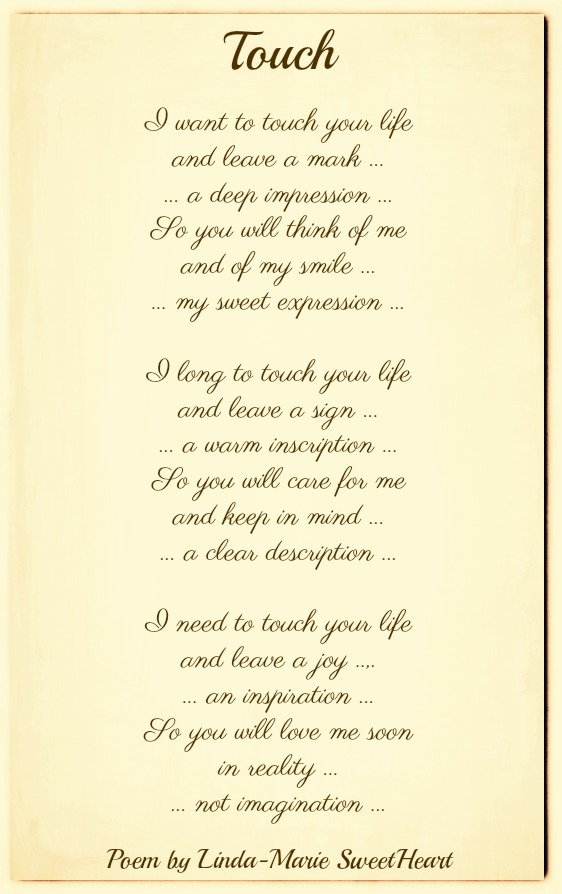 Touch
I want to touch your life
and leave a mark ...
... a deep impression ...
So you will think of me
and of my smile ...
... my sweet expression ...
I long to touch your life
and leave a sign ...
... a warm inscription ...
So you will care for me
and keep in mind ...
... a clear description ...
I need to touch your life
and leave a joy ..,.
... an inspiration ...
So you will love me soon
in reality ...
... not imagination ...
Poem by Linda-Marie SweetHeart